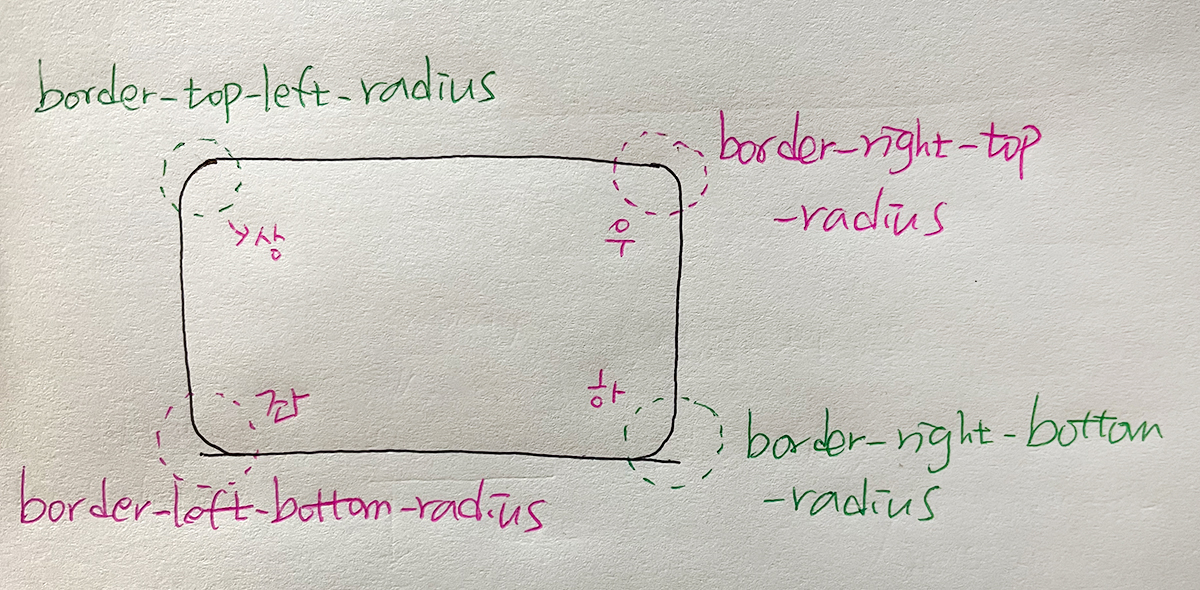 border-top-left-radius
border-right-top
-radius
상
우
하
border-right-bottom
-radius
border-left-bottom-radius